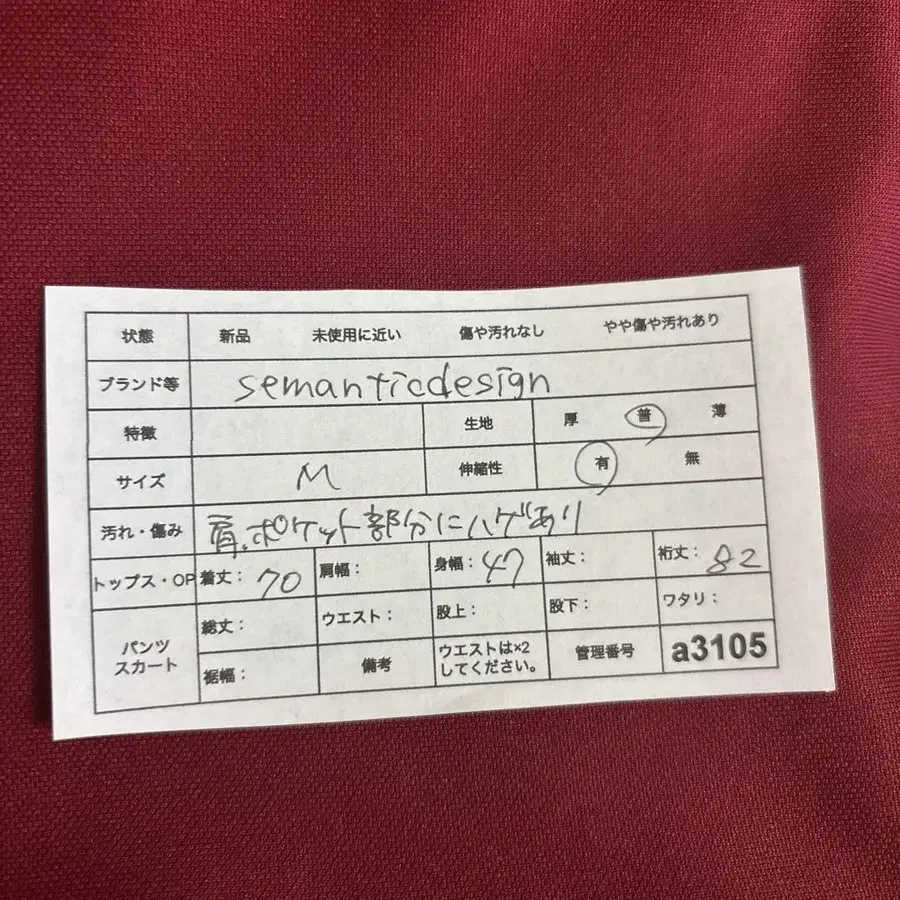 状態 新品 未使用に近い 傷や汚れなし やや傷や汚れあり
ブランド等 semanticdesign
特徴 生地 厚 普 薄
サイズ M 伸縮性 有 無
汚れ・傷み 肩、ポケット部分にハゲあり
トップス・OP 着丈： 70 肩幅： 身幅： 47 袖丈： 裄丈： 82
パンツ スカート 総丈： ウエスト： 股上： 股下： ワタリ：
裾幅： 備考 ウエストは×2 してください。 管理番号 a3105